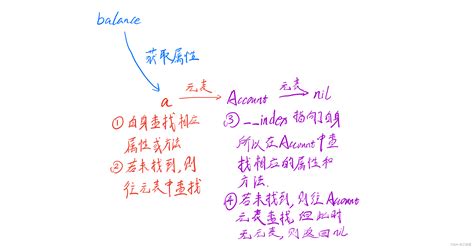 balance
获取属性
a 元表 Account 元表 nil
① 自身查找相应
属性或方法
② 若未找到,则
往元表中查找
③ __index 指向了自身
所以在Account中查
找相应的属性和
方法.
④ 若未找到,则往Account
元表查找,但此时
无元表,则返回nil